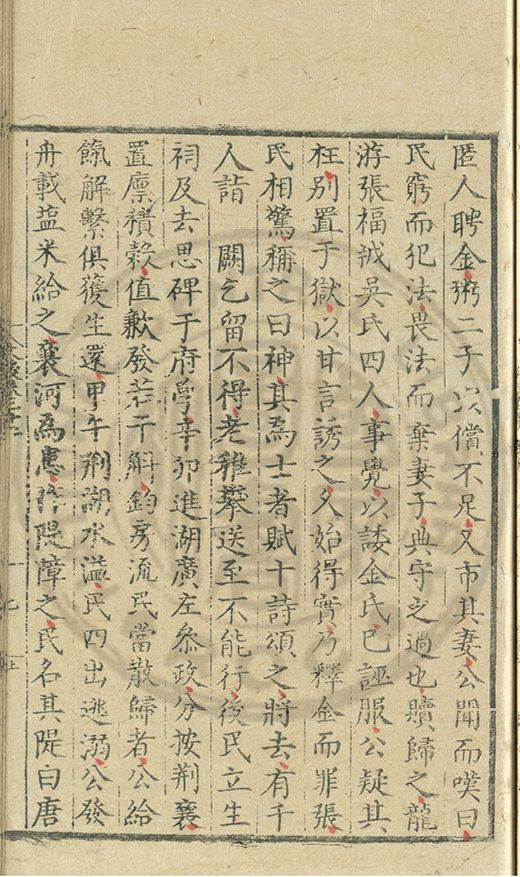 匿人聘金粥二子以償不足又市其妻公聞而嘆曰
民窮而犯法畏法而棄妻子典守之過也贖歸之龍
游張福誠吳氏四人事覺以諉金氏已誣服公疑其
枉别置于獄以甘言誘之久始得實乃釋金而罪張
民相驚稱之曰神其為士者賦十詩頌之將去有千
人詣 闕乞留不得老稚攀送至不能行後民立生
祠及去思碑于府學辛卯進湖廣左叅政分按荆襄
置廪積榖值歉發若干斛鈞房流民當散歸者公給
餼解繫俱獲生還甲午荆湖水溢民四出逃溺公發
舟載盐米給之襄河為患隄障之民名其隄曰唐